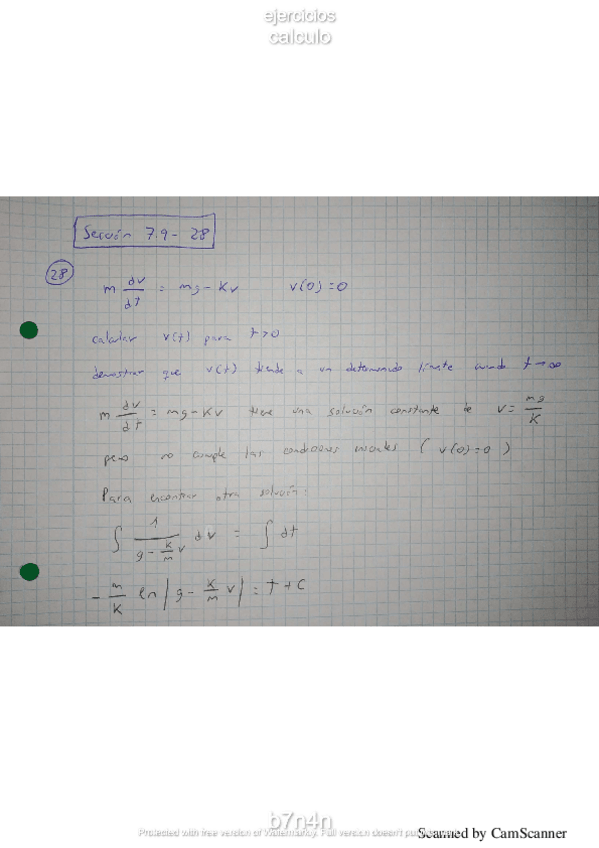 ejercicios
calculo
Sección 7.9 - 28
28
m dv/dt = mg - Kv    v(0)=0
calcular v(t) para t>0
demostrar que v(t) tiende a un determinado límite cuando t→∞
m dv/dt = mg - Kv tiene una solución constante de v = mg/K
pero no cumple las condiciones iniciales ( v(0)=0 )
Para encontrar otra solución:
∫ 1/(g - k/m v) dv = ∫ dt
- m/K ln|g - K/m v| = t + C
b7n4n
Protected with free version of Watermarkly. Full version doesn't put
Scanned by CamScanner